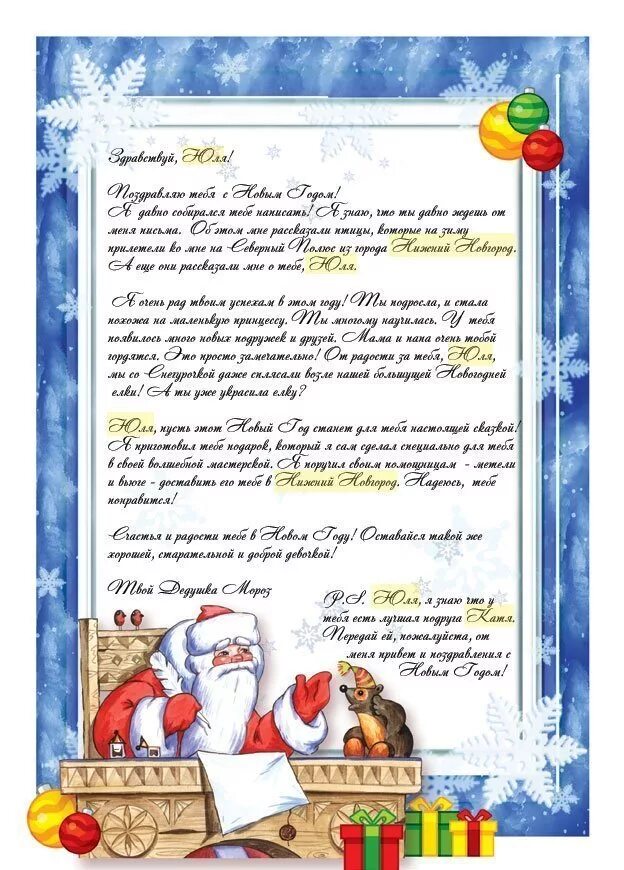 Здравствуй, Юля!
Поздравляю тебя с Новым Годом!
Я давно собирался тебе написать! Я знаю, что ты давно ждешь от
меня письма. Об этом мне рассказали птицы, которые на зиму
прилетели ко мне на Северный Полюс из города Нижний Новгород.
А еще они рассказали мне о тебе, Юля.
Я очень рад твоим успехам в этом году! Ты подросла, и стала
похожа на маленькую принцессу. Ты многому научилась. У тебя
появилось много новых подружек и друзей. Мама и папа очень тобой
гордятся. Это просто замечательно! От радости за тебя, Юля,
мы со Снегурочкой даже сплясали возле нашей большущей Новогодней
елки! А ты уже украсила елку?
Юля, пусть этот Новый Год станет для тебя настоящей сказкой!
Я приготовил тебе подарок, который я сам сделал специально для тебя
в своей волшебной мастерской. Я поручил своим помощницам - метели
и вьюге - доставить его тебе в Нижний Новгород. Надеюсь, тебе
понравится!
Счастья и радости тебе в Новом Году! Оставайся такой же
хорошей, старательной и доброй девочкой!
Твой Дедушка Мороз
P.S. Юля, я знаю что у
тебя есть лучшая подруга Катя.
Передай ей, пожалуйста, от
меня привет и поздравления с
Новым Годом!